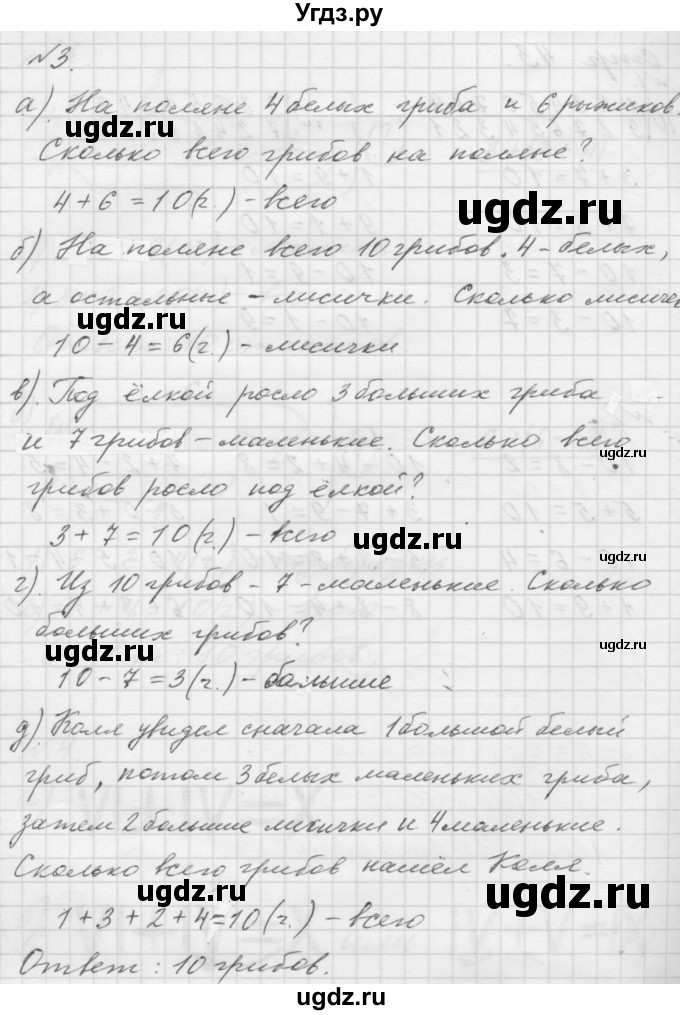 Угдз.ру
№3.
а). На поляне 4 белых гриба и 6 рыжиков.
Сколько всего грибов на поляне?
4 + 6 = 10 (г.) - всего
б) На поляне всего 10 грибов. 4 - белых,
а остальные - лисички. Сколько лисичек
10 - 4 = 6 (г.) - лисички
в). Под ёлкой росло 3 больших гриба
и 7 грибов - маленькие. Сколько всего
грибов росло под ёлкой?
3 + 7 = 10 (г.) - всего
г). Из 10 грибов - 7 - маленькие. Сколько
больших грибов?
10 - 7 = 3 (г.) - большие
д) Коля увидел сначала 1 большой белый
гриб, потом 3 белых маленьких гриба,
затем 2 большие лисички и 4 маленькие.
Сколько всего грибов нашёл Коля.
1 + 3 + 2 + 4 = 10 (г.) - всего
Ответ: 10 грибов.
ugdz.ru
ugdz.ru
ugdz.ru
ugdz.ru
ugdz.ru
ugdz.ru
ugdz.ru
ugdz.ru
ugdz.ru
ugdz.ru
ugdz.ru
ugdz.ru